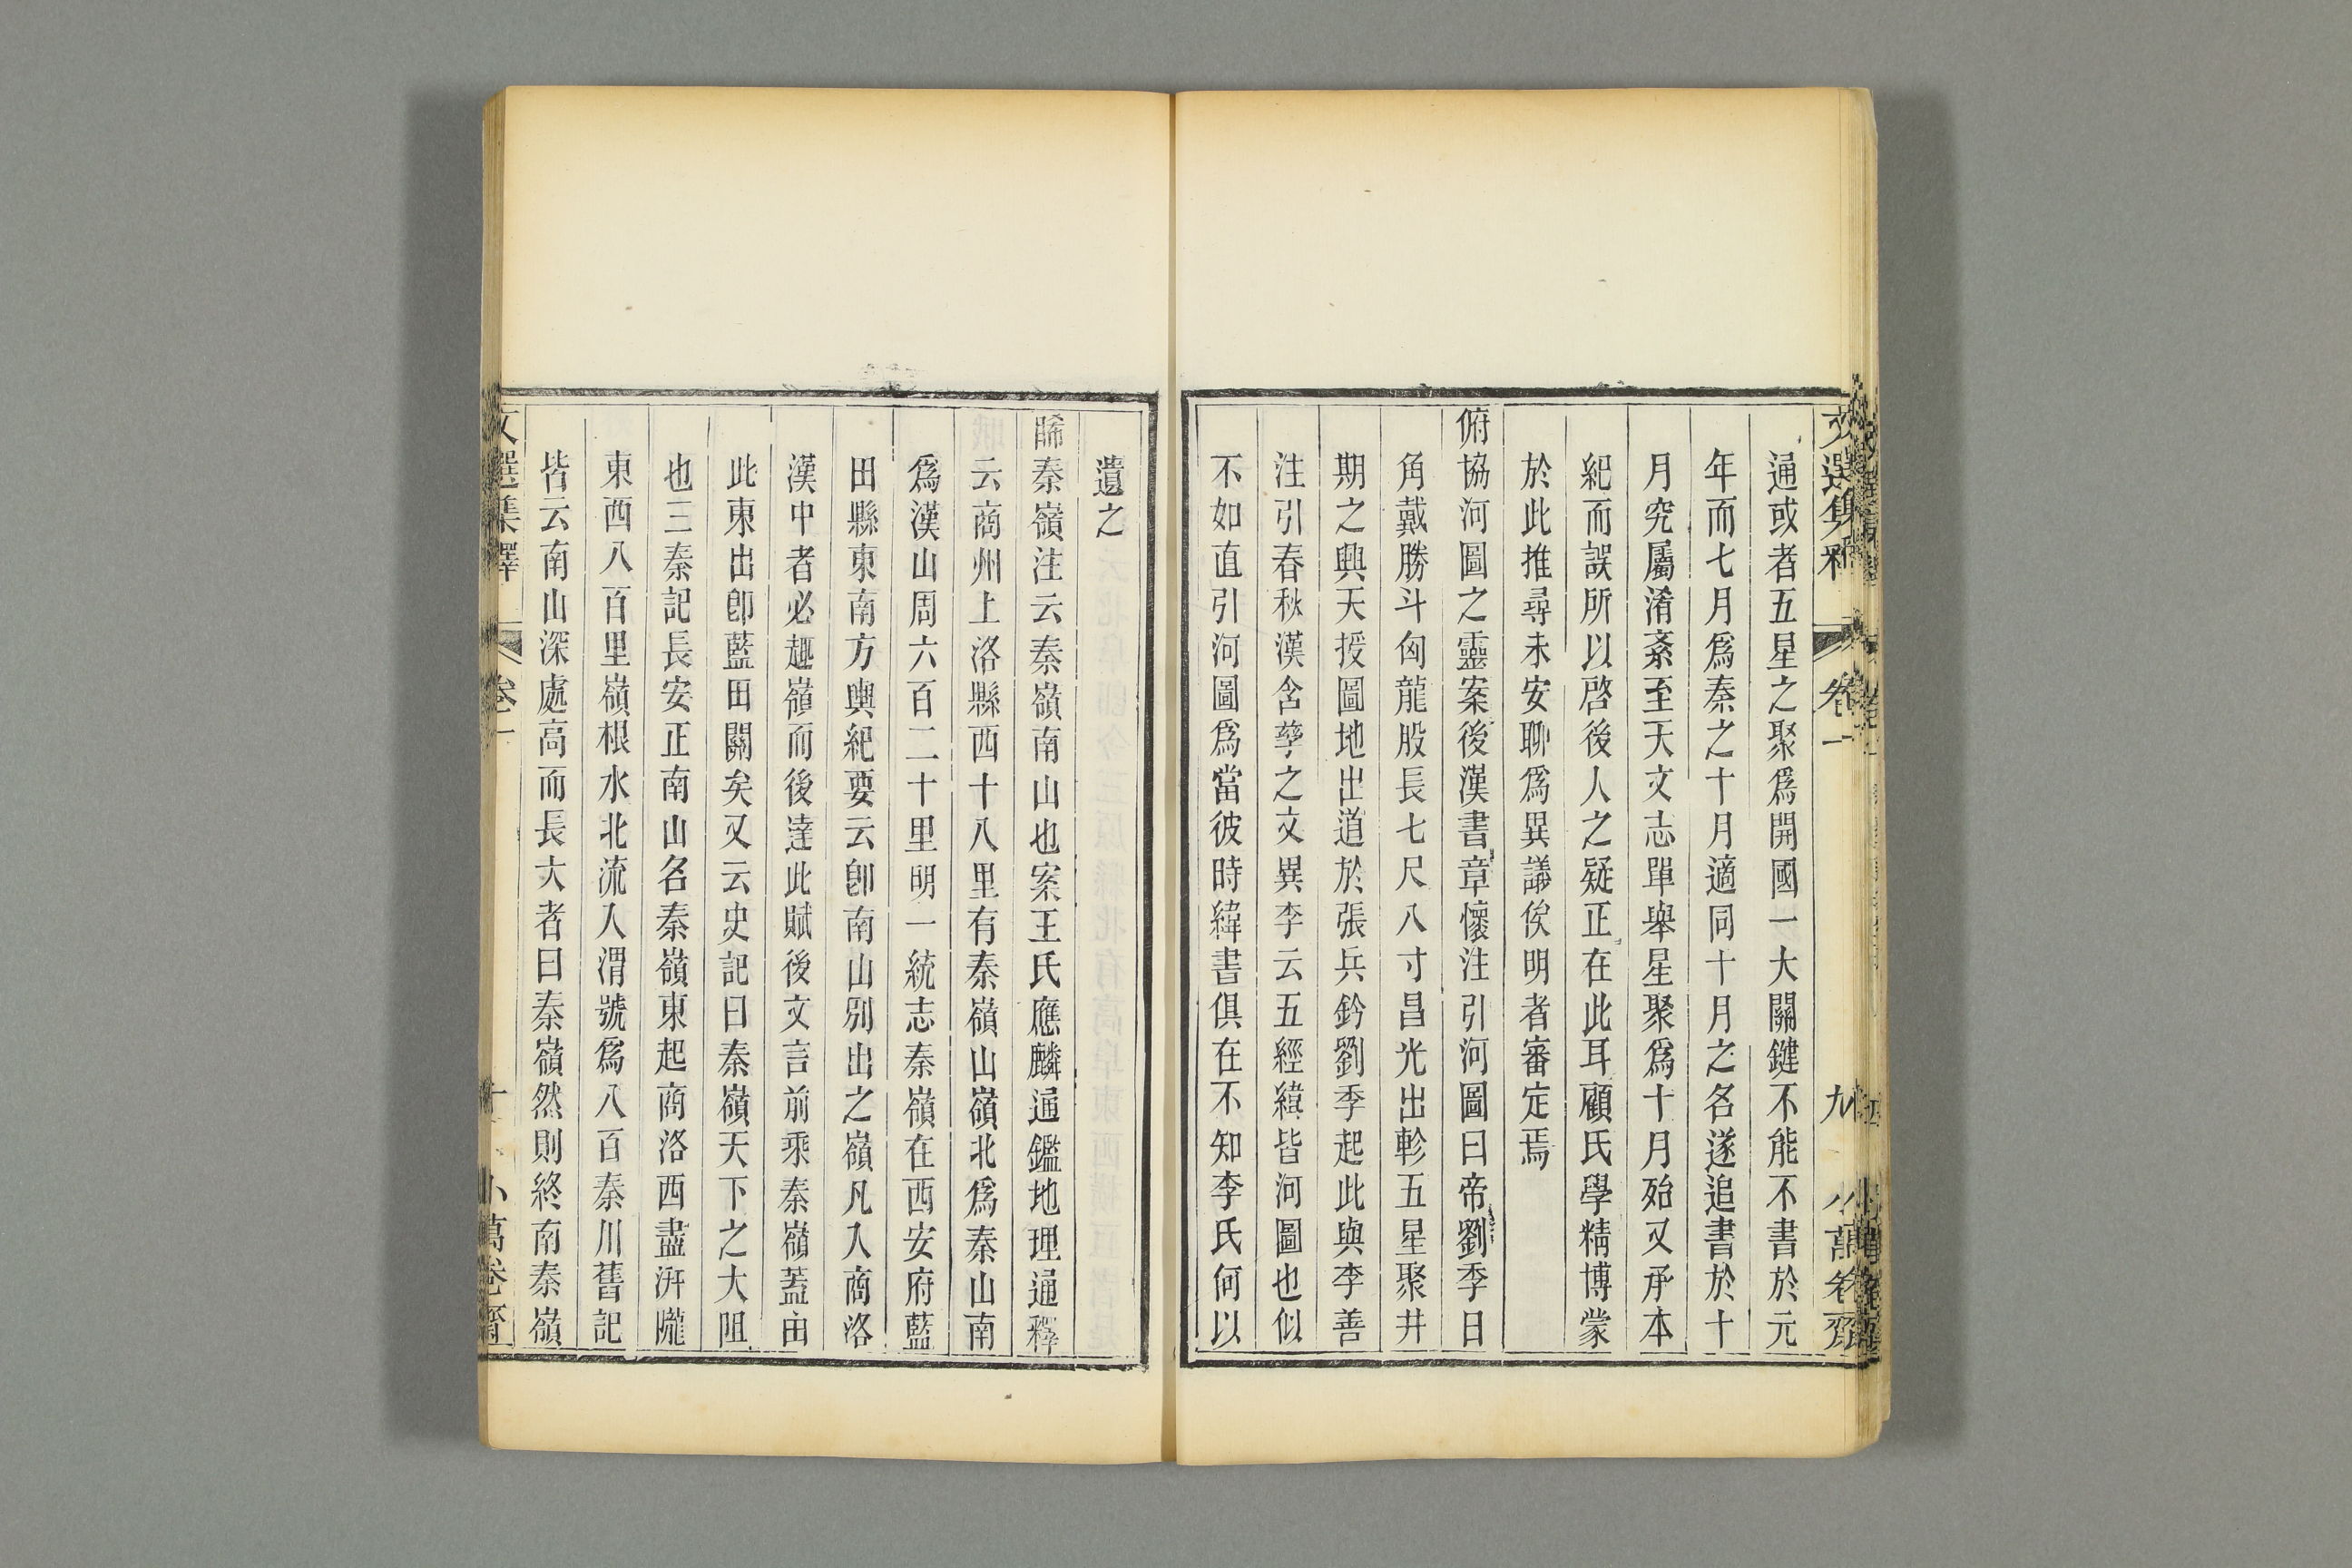 文選集釋 卷一 九 小萬卷齋
通或者五星之聚爲開國一大關鍵不能不書於元
年而七月爲秦之十月適同十月之名遂追書於十
月究屬淆紊至天文志單舉星聚爲十月殆又承本
紀而誤所以啓後人之疑正在此耳顧氏學精博蒙
於此推尋未安聊爲異議俟明者審定焉
俯協河圖之靈案後漢書章懷注引河圖曰帝劉季日
角戴勝斗匈龍股長七尺八寸昌光出軫五星聚井
期之興天授圖地出道於張兵鈐劉季起此與李善
注引春秋漢含孳之文異李云五經緯皆河圖也似
不如直引河圖爲當彼時緯書俱在不知李氏何以
遺之
睎秦嶺注云秦嶺南山也案王氏應麟通鑑地理通釋
云商州上洛縣西十八里有秦嶺山嶺北爲秦山南
爲漢山周六百二十里明一統志秦嶺在西安府藍
田縣東南方輿紀要云卽南山別出之嶺凡入商洛
漢中者必趣嶺而後達此賦後文言前乘秦嶺蓋由
此東出卽藍田關矣又云史記曰秦嶺天下之大阻
也三秦記長安正南山名秦嶺東起商洛西盡汧隴
東西八百里嶺根水北流入渭號爲八百秦川舊記
皆云南山深處高而長大者曰秦嶺然則終南秦嶺
文選集釋 卷一 十 小萬卷齋